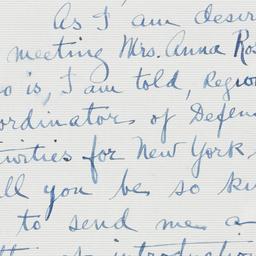 As I am desir
meeting Mrs. Anna Ros
o is, I am told, Region
ordinator of Defen
tivities for New York,
ll you be so kin
to send me a
of introduction